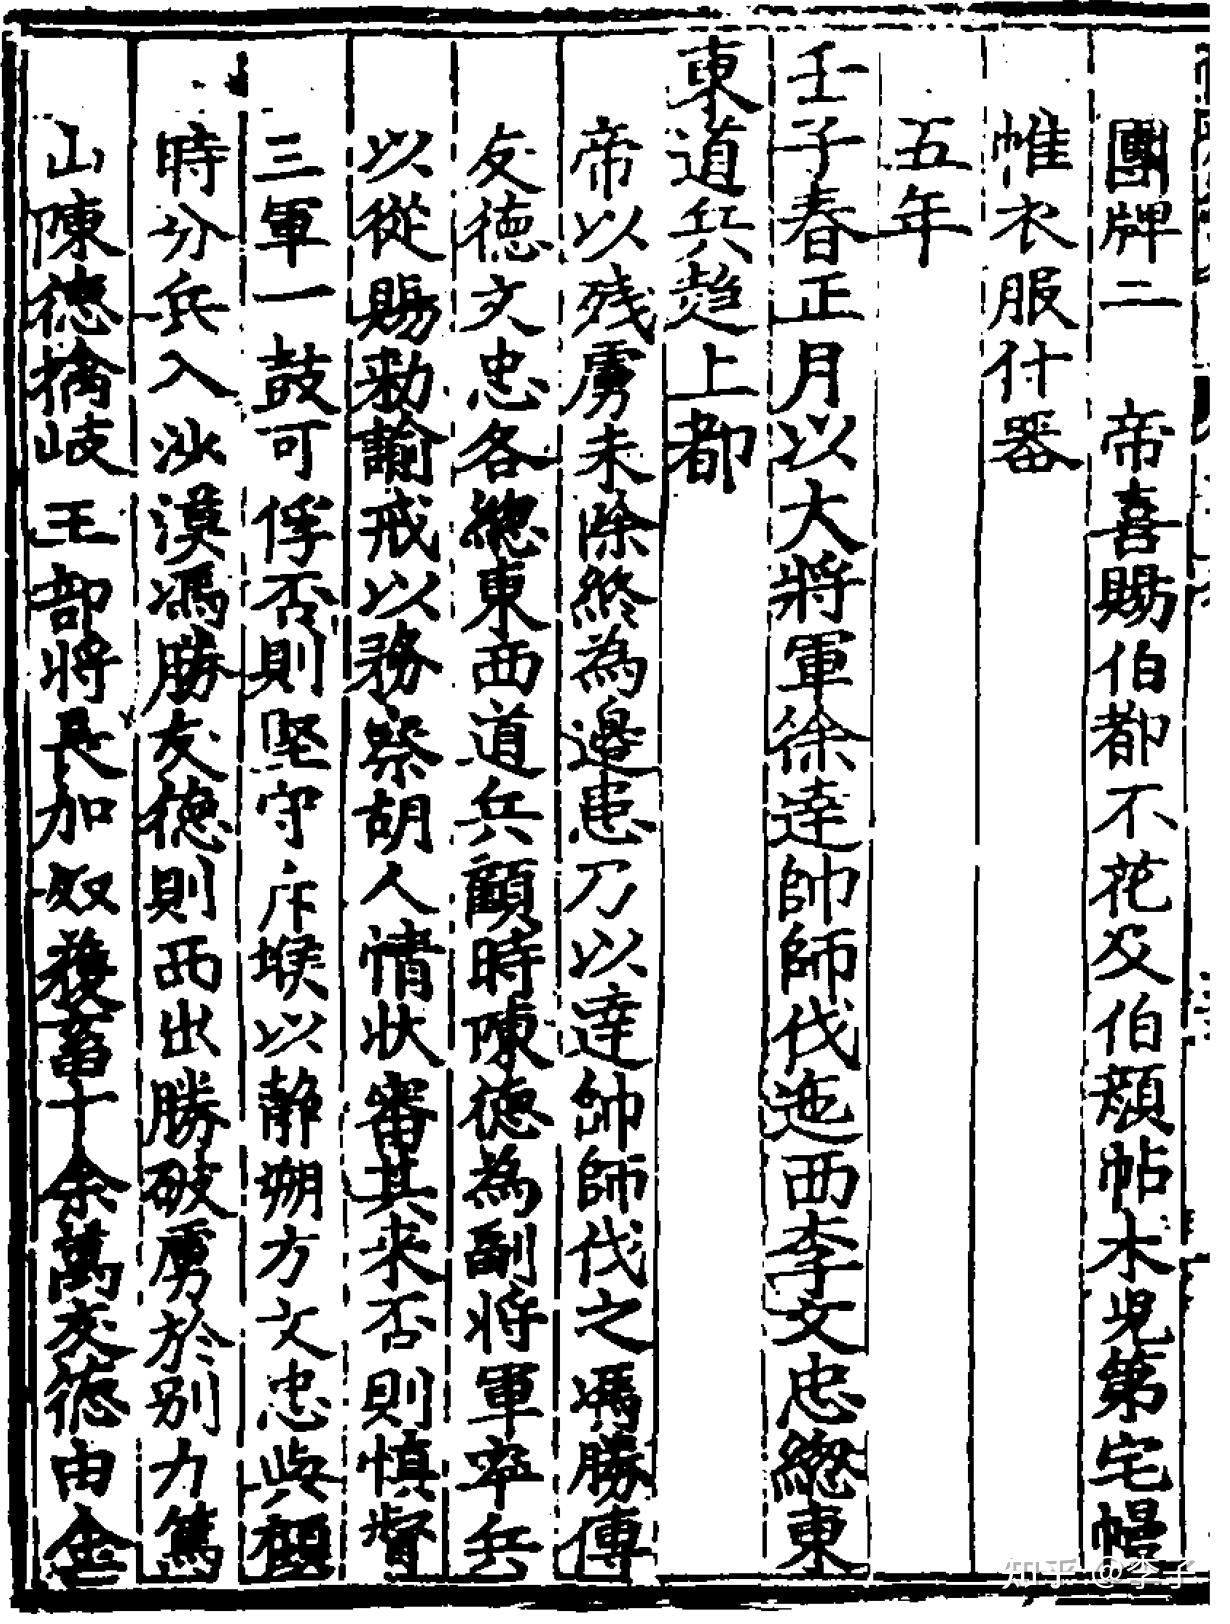 團牌二 帝喜賜伯都不花及伯顏帖木兒第宅幔
帷衣服什器
五年
壬子春正月以大將軍徐達帥師伐迤西李文忠總東
東道兵趍上都
帝以残虜未除終為邊患乃以達帥師伐之馮勝傅
友德文忠各總東西道兵顧時陳德為副将軍率兵
以從賜勑諭戒以務察胡人情状審其来否則慎督
三軍一鼓可俘否則堅守斥堠以靜朔方文忠與顧
時分兵入沙漠馮勝友德則西出勝破虜於別力篤
山陳德擒岐王部将長加奴獲畜十余萬友德由金
知乎 @李子